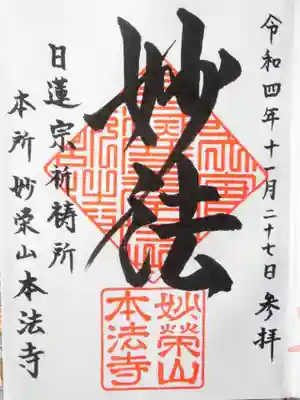 令和四年十一月二十七日参拝
妙法
日蓮宗祈祷所
本所妙榮山本法寺
妙榮山
本法寺